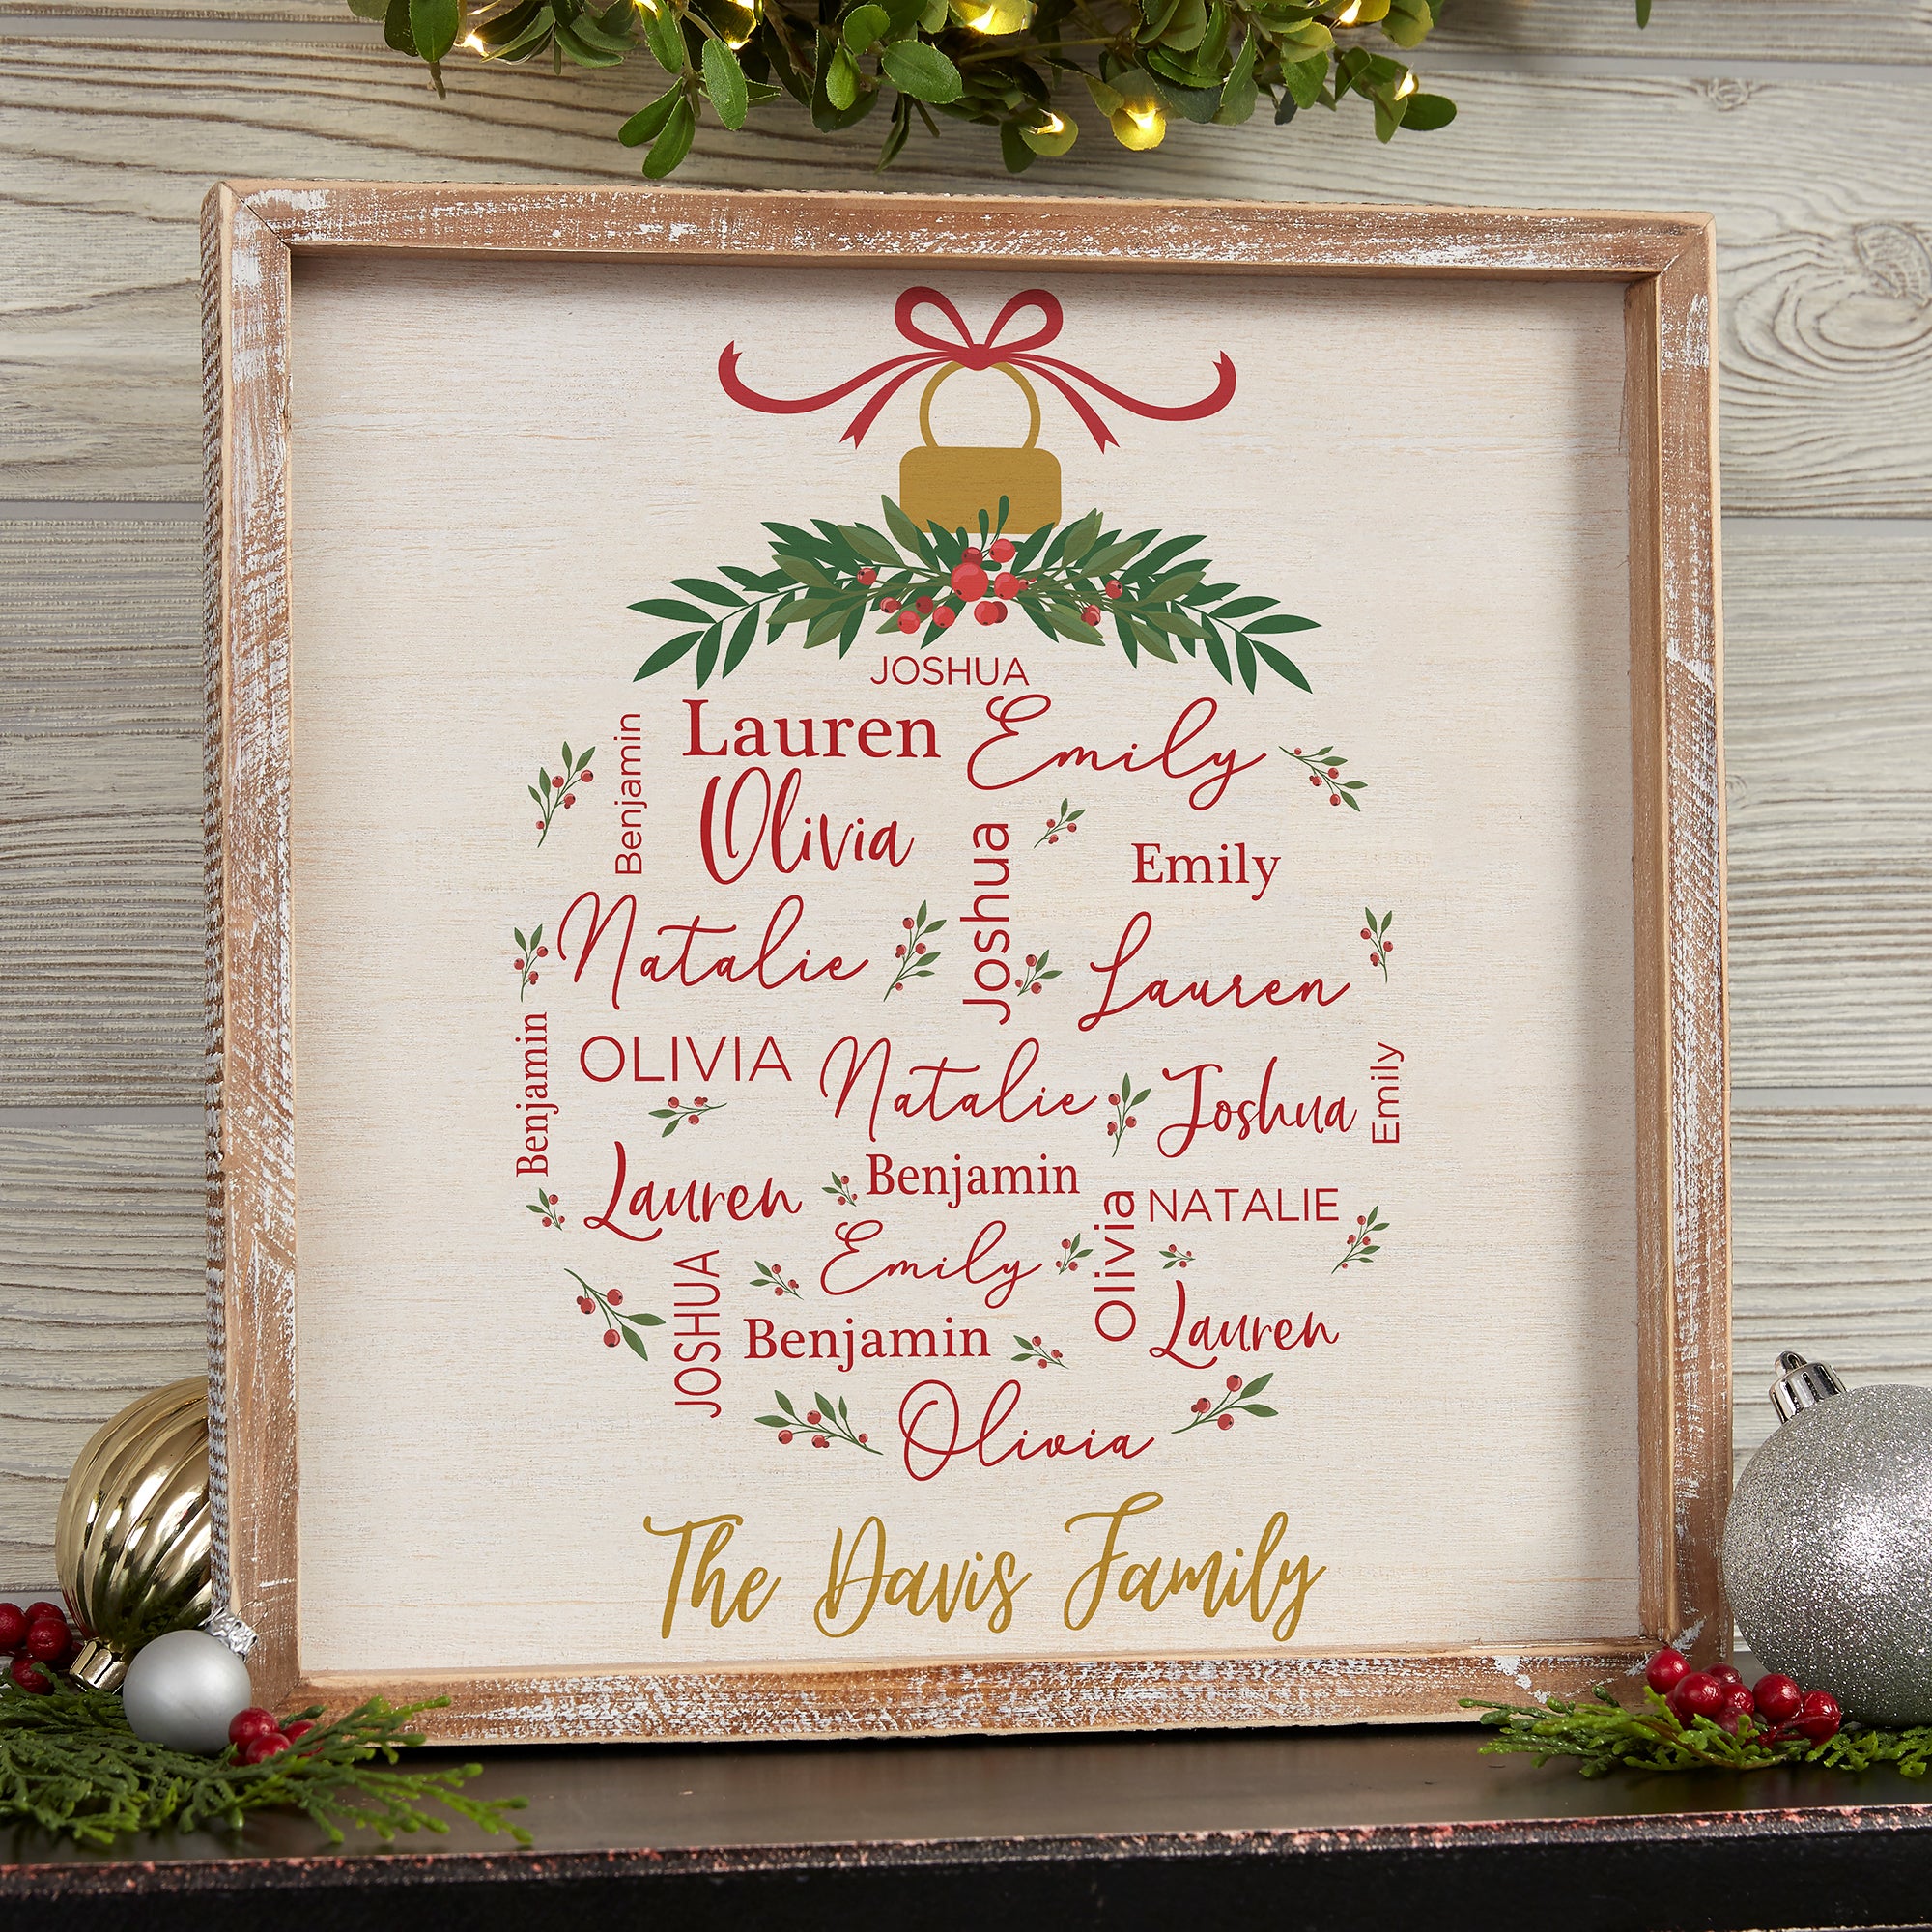 JOSHUA
Benjamin
Lauren Emily
Olivia
Joshua
Emily
Natalie
Lauren
Benjamin
OLIVIA
Natalie
Joshua
Emily
Lauren
Benjamin
Olivia
NATALIE
Emily
JOSHUA
Benjamin
Lauren
Olivia
The Davis Family